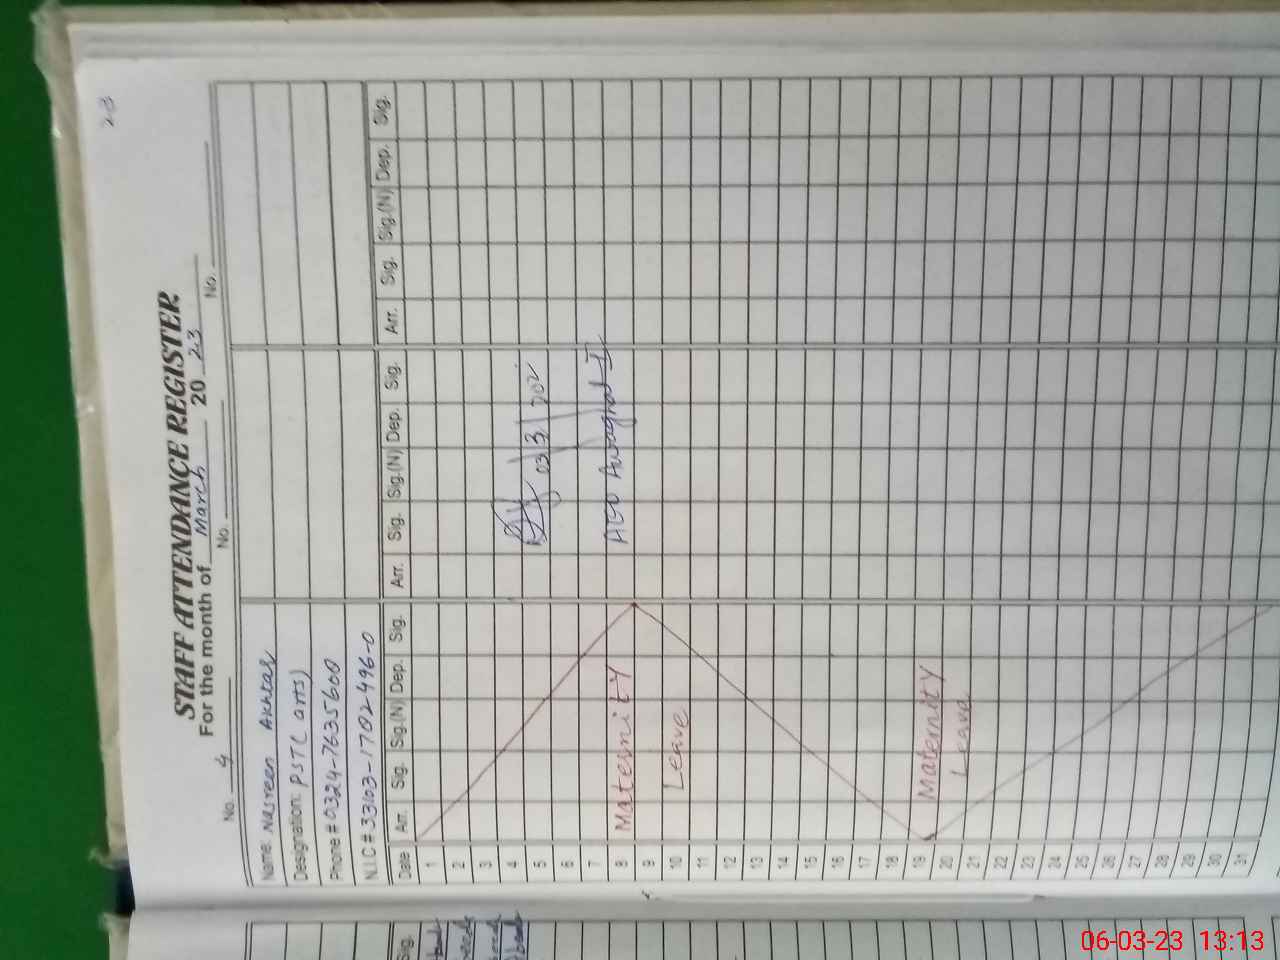 23
STAFF ATTENDANCE REGISTER
For the month of March 20 23
No. 4 No. No.
Name: Nasreen Akhtar
Designation: PST( arts)
Phone # 0324-7635600
N.I.C # 33103-1702496-0
Date Arr. Sig. Sig.(N) Dep. Sig. Arr. Sig. Sig.(N) Dep. Sig. Arr. Sig. Sig.(N) Dep. Sig.
1
2
3
4
5 03/3/202
6
7
8 Maternity AEO
9
10 Leave
11
12
13
14
15
16
17
18
19
20 Maternity
21 Leave
22
23
24
25
26
27
28
29
30
31
Sig.
06-03-23 13:13